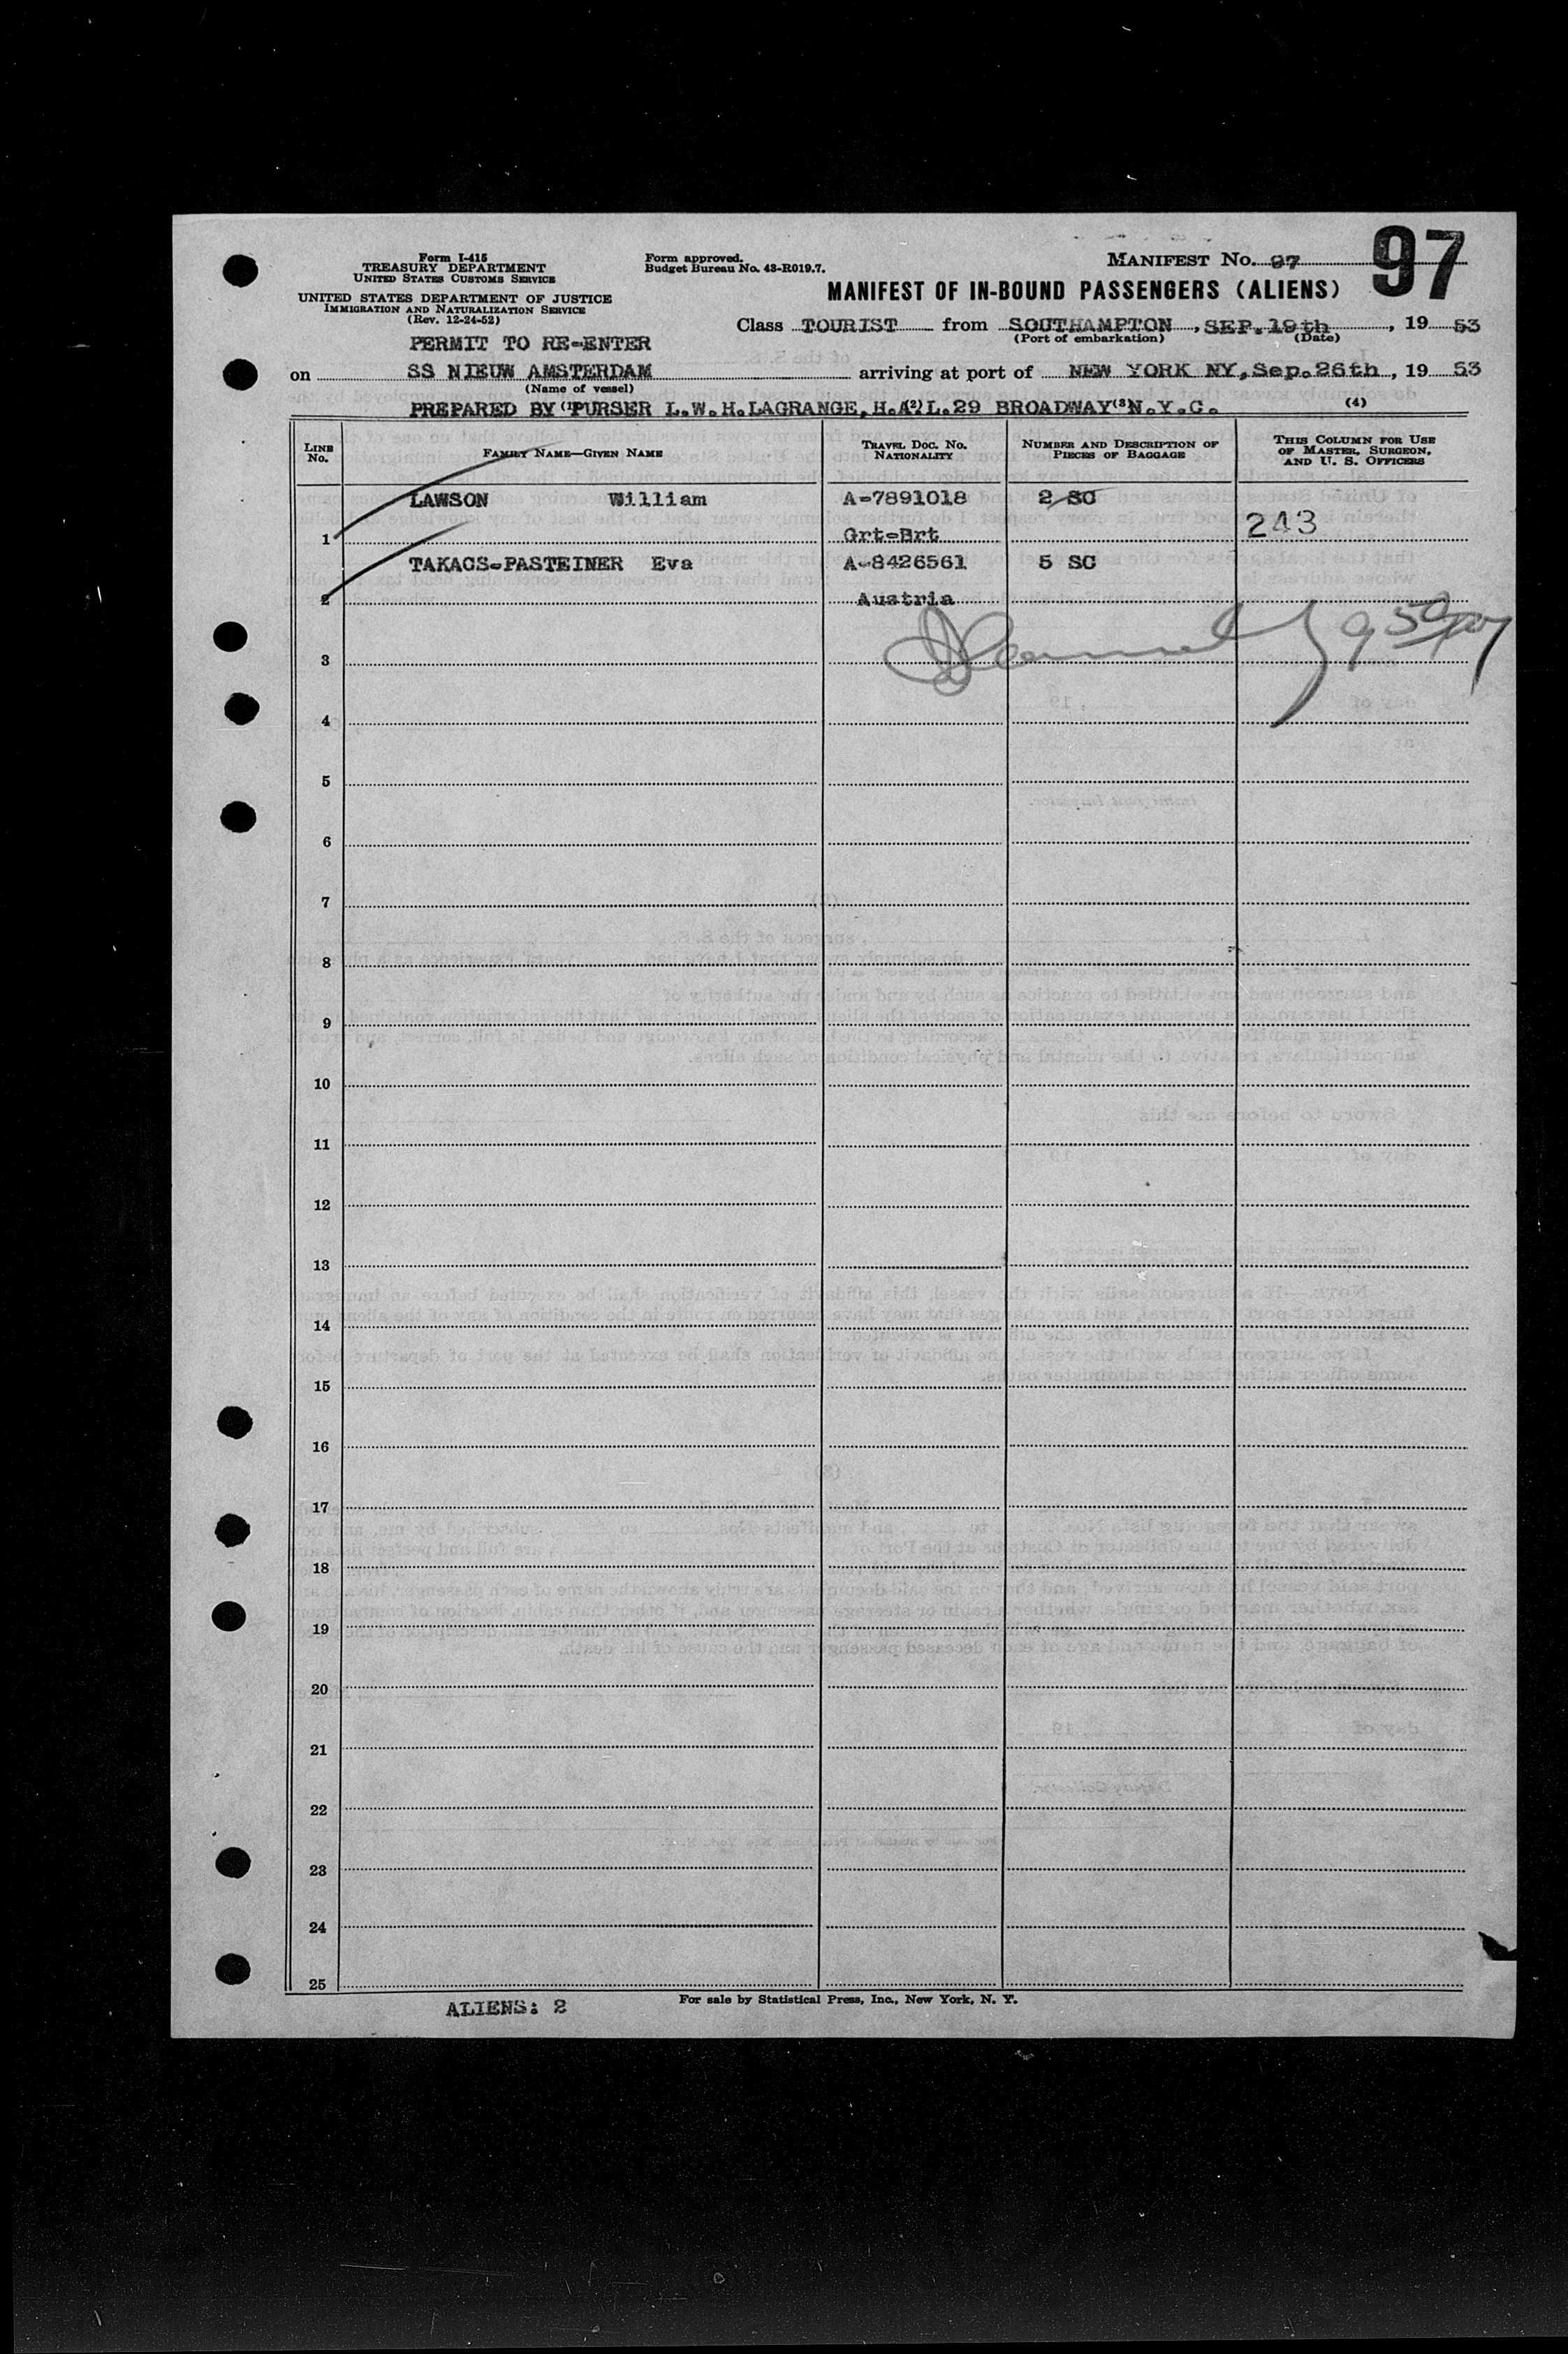 97
Form I-415
TREASURY DEPARTMENT
UNITED STATES CUSTOMS SERVICE
UNITED STATES DEPARTMENT OF JUSTICE
IMMIGRATION AND NATURALIZATION SERVICE
(Rev. 12-24-52)
Form approved.
Budget Bureau No. 43-R019.7.
MANIFEST No. 97
MANIFEST OF IN-BOUND PASSENGERS (ALIENS)
Class TOURIST from SOUTHAMPTON, SEP. 19th, 1953
(Port of embarkation) (Date)
PERMIT TO RE-ENTER
on SS NIEUW AMSTERDAM arriving at port of NEW YORK NY, Sep. 26th, 1953
(Name of vessel)
PREPARED BY (1) PURSER L.W.H.LAGRANGE, H.A(2)L.29 BROADWAY(3)N.Y.C. (4)
LINE No. FAMILY NAME—GIVEN NAME TRAVEL DOC. No. NATIONALITY NUMBER AND DESCRIPTION OF PIECES OF BAGGAGE THIS COLUMN FOR USE OF MASTER, SURGEON, AND U. S. OFFICERS
LAWSON William A-7891018 2 SC
1 Grt-Brt 243
TAKACS-PASTEINER Eva A-8426561 5 SC
2 Austria
3
4
5
6
7
8
9
10
11
12
13
14
15
16
17
18
19
20
21
22
23
24
25
ALIENS: 2
For sale by Statistical Press, Inc., New York, N. Y.